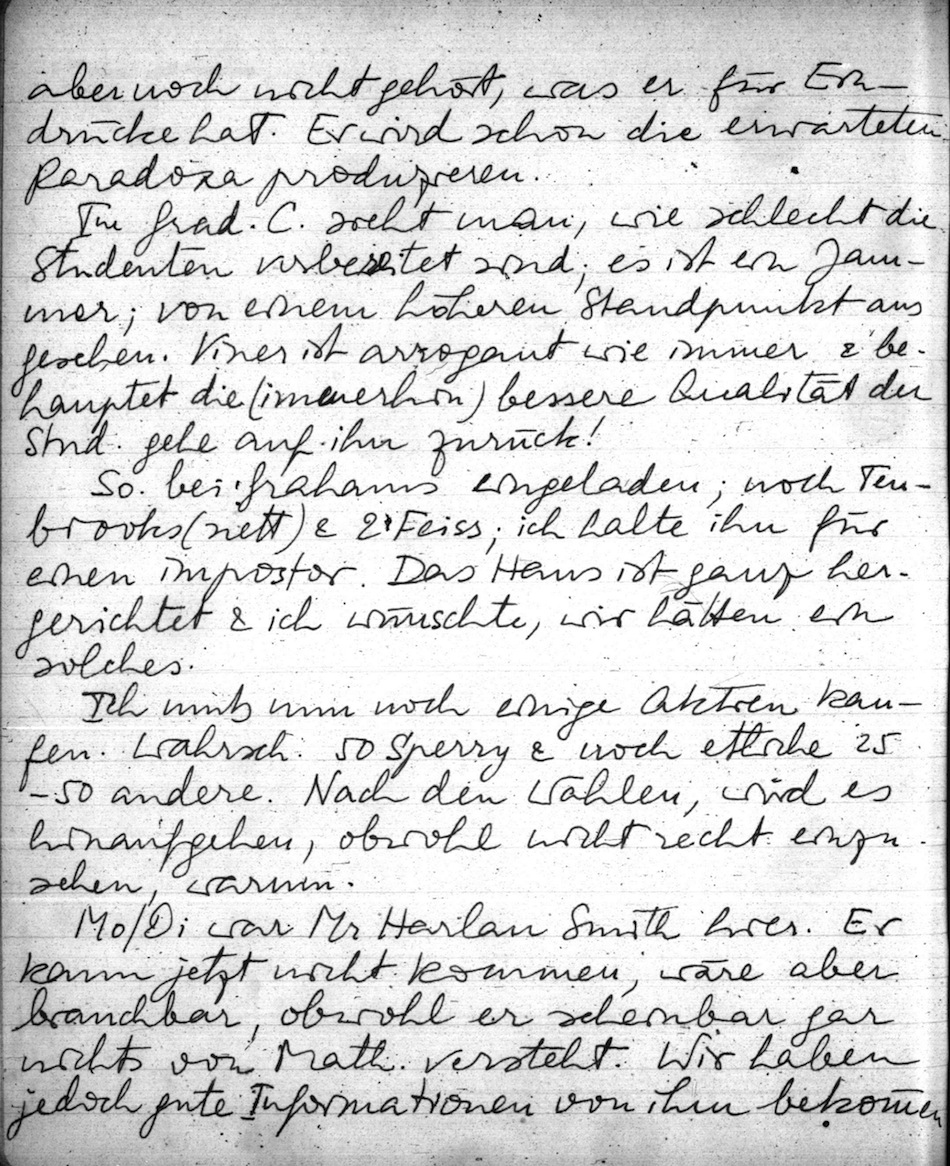 aber noch nicht gehört, was er für Ein-
drücke hat. Er wird schon die erwarteten
Paradoxa produzieren.
Im Grad. C. sieht man, wie schlecht die
Studenten vorbereitet sind; es ist ein Jam-
mer; von einem höheren Standpunkt aus
gesehen. Viner ist arrogant wie immer & be-
hauptet die (immerhin) bessere Qualität der
Stud. gehe auf ihn zurück!
So. bei Grahams eingeladen; noch Ten-
brooks (nett) & 2 Feiss; ich halte ihn für
einen impostor. Das Haus ist ganz her-
gerichtet & ich wünschte, wir hätten ein
solches.
Ich muß nun noch einige Aktien kau-
fen. Wahrsch. 50 Sperry & noch etliche 25
-50 andere. Nach den Wahlen, wird es
hinaufgehen, obwohl nicht recht einzu-
sehen, warum.
Mo/Di war Mr Harlan Smith hier. Er
kann jetzt nicht kommen, wäre aber
brauchbar, obwohl er scheinbar gar
nichts von Math. versteht. Wir haben
jedoch gute Informationen von ihm bekom̄en